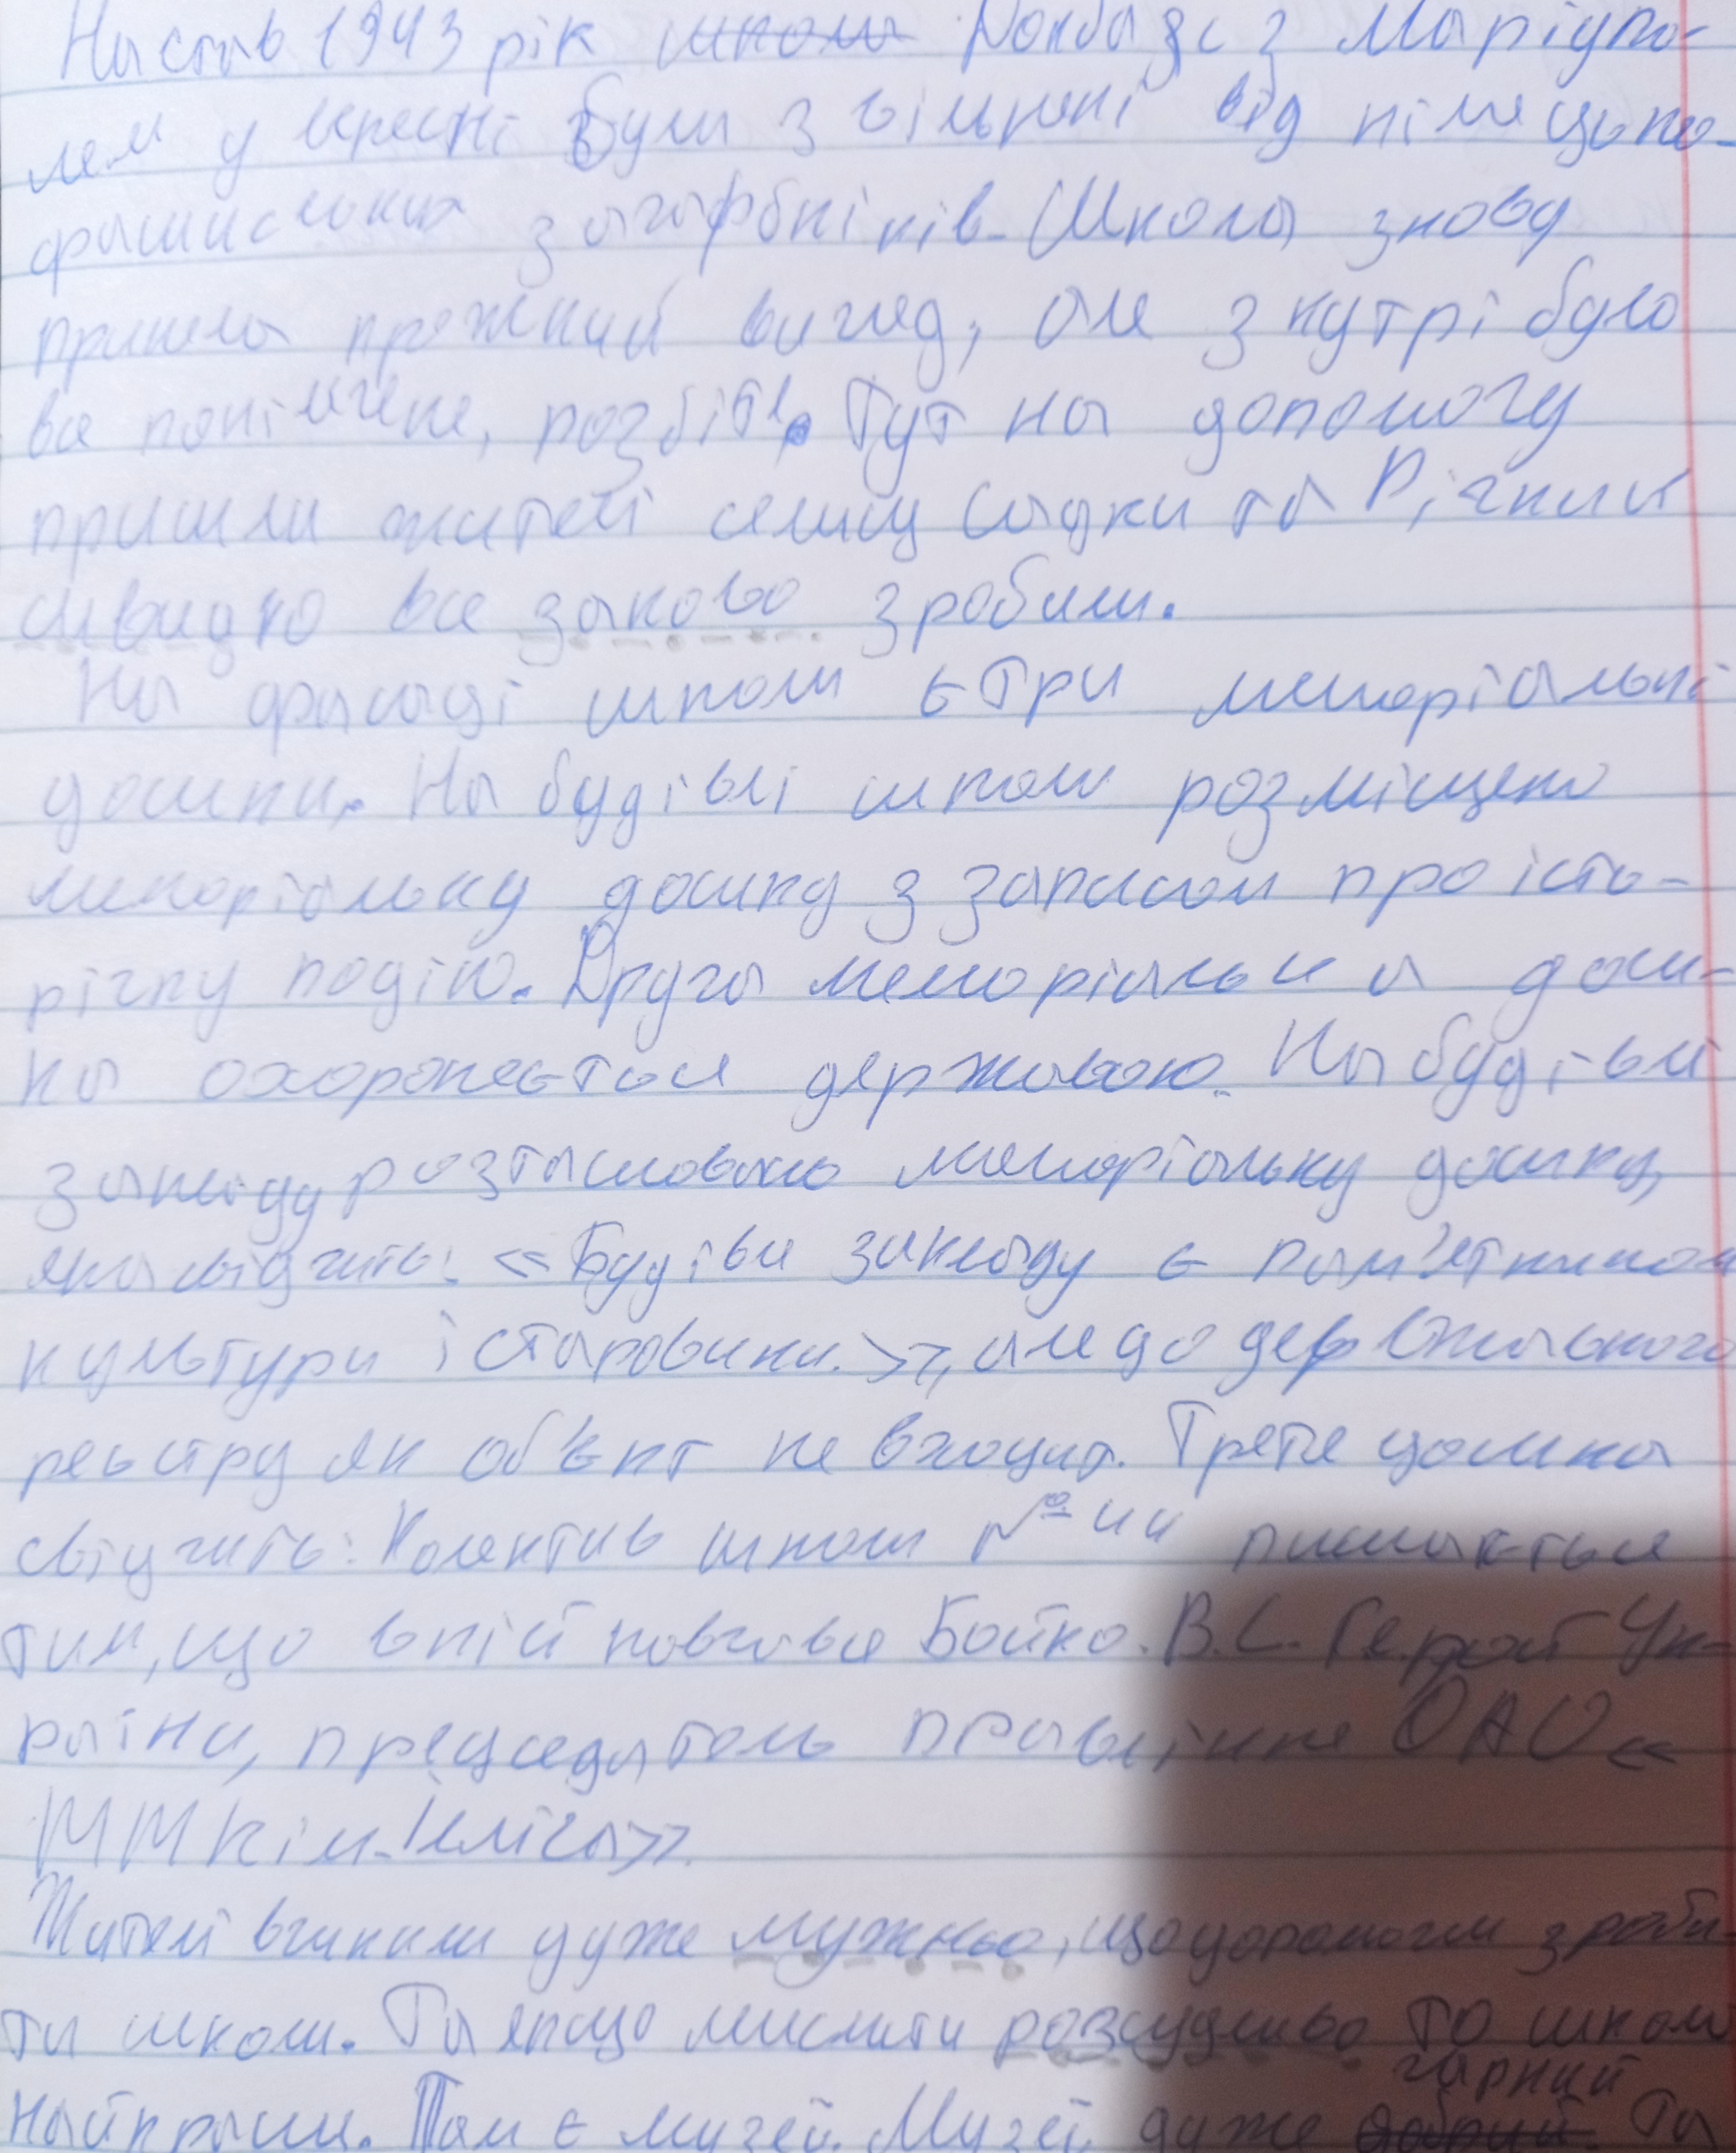 Настав 1943 рік школи Донбас з Маріупо-
лем у вересні були звільнені від німецько-
фашиських загарбніків. Школа знову
прийняла прежний вигляд, але з нутрі було
все понімечене, розбіте. Тут на допомогу
прийшли жителі селищ Садки та Річники
швидко все заново зробили.
На фасаді школи є три меморіальні
дошки. На будівлі школи розміщено
меморіальну дошку з записом про істо-
річну подію. Друга меморіальна дош-
ка охороняється державою. На будівлі
закладу розташовано меморіальну дошку,
яка свідчить: «Будівля закладу є пам'ятником
культури і старовини.», але до державного
реєстру як об'єкт не входит. Третя дошка
свідчить: Колектив школи №44 пишається
тим, що в ній навчався Бойко. В.С. Герой Ук-
раїни, председатель правління ОАО «
ММК ім. Ілліча».
Жителі вчинили дуже мужньо, що допомогли зроби
ти школи. Та якщо мислити розсудливо то школи
гарний
найкращи. Там є музей. Музей дуже добрий. Та